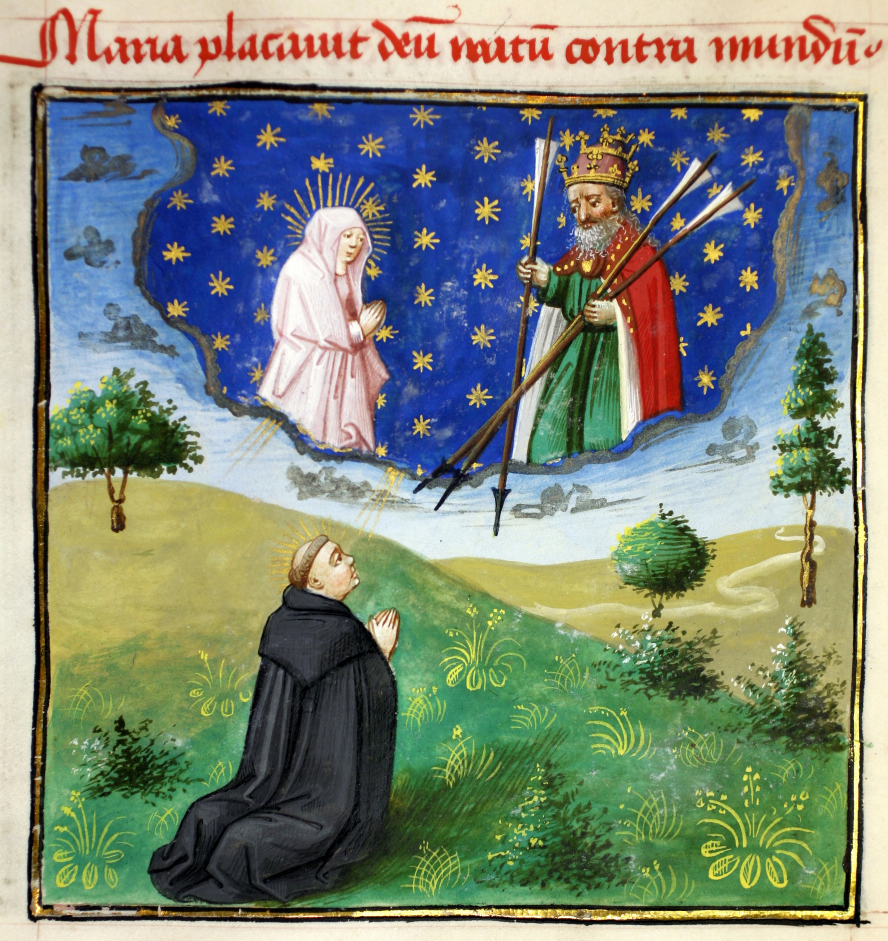 Maria placauit deū iratū contra mundū